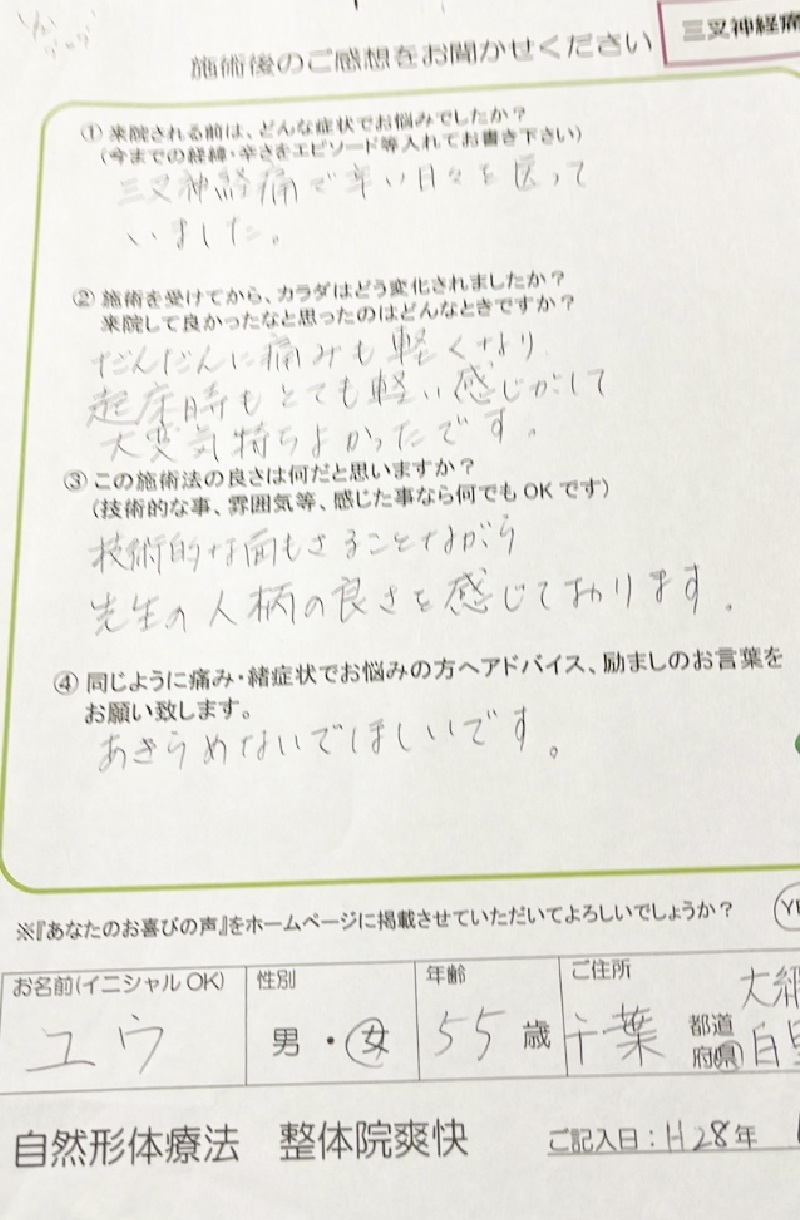 三叉神経痛
施術後のご感想をお聞かせください
① 来院される前は、どんな症状でお悩みでしたか？
（今までの経緯・辛さをエピソード等入れてお書き下さい）
三叉神経痛で辛い日々を送って
いました。
② 施術を受けてから、カラダはどう変化されましたか？
来院して良かったなと思ったのはどんなときですか？
だんだんに痛みも軽くなり
起床時もとても軽い感じがして
大変気持ちよかったです。
③ この施術法の良さは何だと思いますか？
（技術的な事、雰囲気等、感じた事なら何でもOKです）
技術的な面もさることながら
先生の人柄の良さを感じております。
④ 同じように痛み・緒症状でお悩みの方へアドバイス、励ましのお言葉を
お願い致します。
あきらめないでほしいです。
※『あなたのお喜びの声』をホームページに掲載させていただいてよろしいでしょうか？
お名前(イニシャルOK) 性別 年齢 ご住所
ユウ 男・女 55歳 千葉 都道府県 大網白
自然形体療法 整体院爽快 ご記入日：H28年